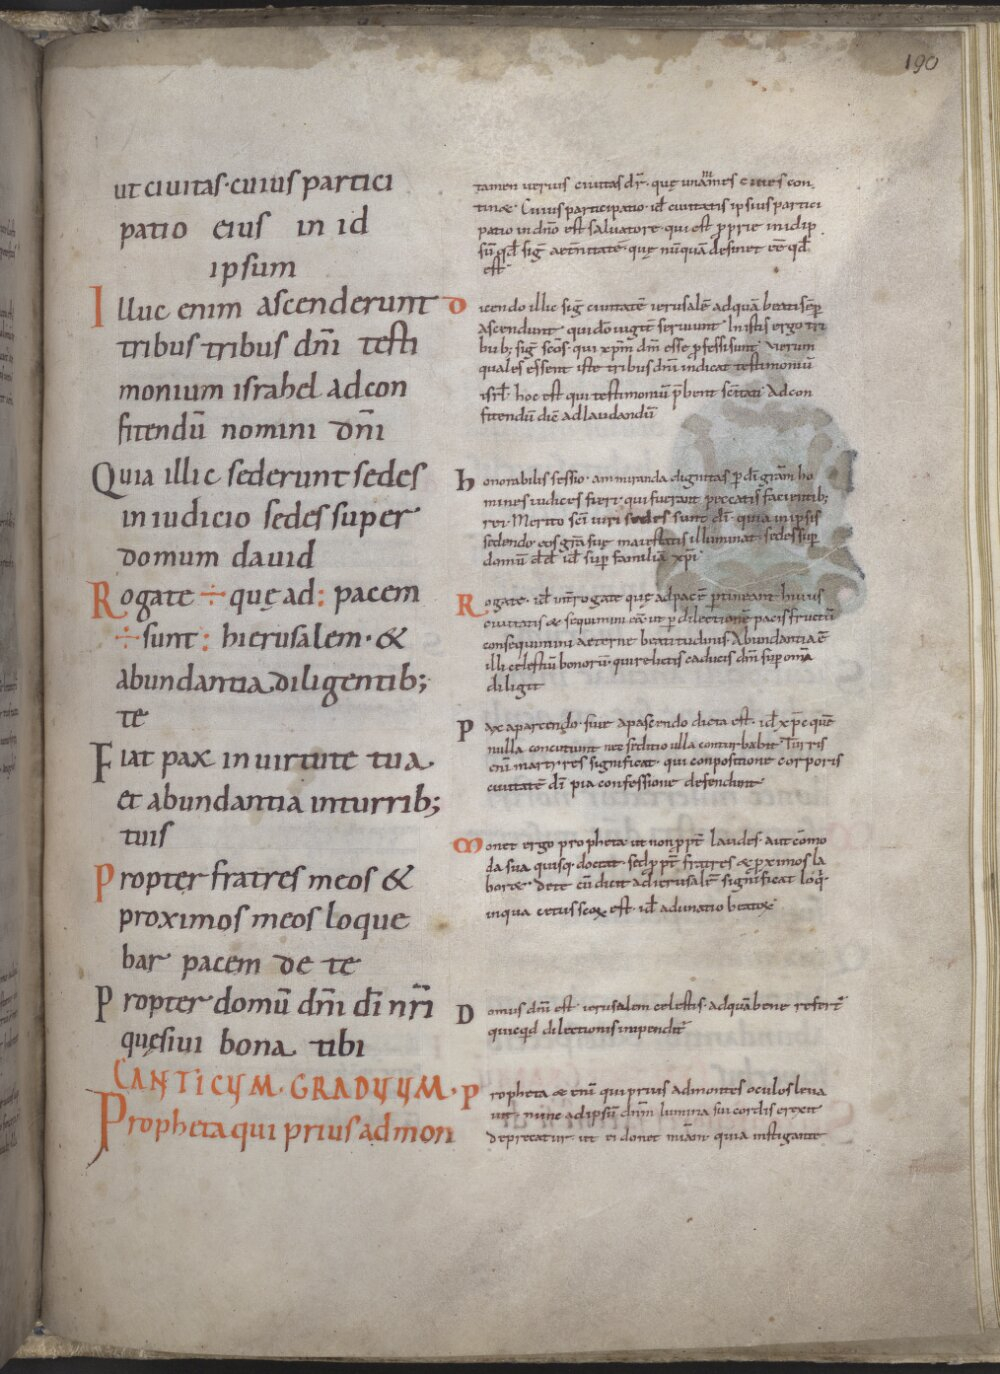 190
ut ciuitas· cuius partici
patio eius in id
ipsum
Illuc enim ascenderunt
tribus tribus dn̄i testi
monium israhel ad con
fitendū nomini dn̄i
Quia illic sederunt sedes
in iudicio sedes super
domum dauid
Rogate ÷ quę ad: pacem
÷ sunt: hierusalem· &
abundantia diligentib;
te
Fiat pax in uirtute tua
et abundantia in turrib;
tuis
Propter fratres meos &
proximos meos loque
bar pacem de te
Propter domū dn̄i dī nr̄i
quęsiui bona tibi
CANTICUM· GRADUUM·
Propheta qui prius ad mon
tamen uerius ciuitas dr̄· quę unamīmes ciues con
tinet· Cuius participatio· id ciuitatis ipsius partici
patio in dn̄o est saluatore· qui est p̄prie in idip
sū· qd̄ sig̅ aet̄nitate· quę nūquā desinet eē qd̄
est
Dicendo illic sig̅ ciuitatē ierusalē ad quā beati sēp
ascendunt· qui dō iugit̄ seruiunt· In istis ergo tri
bub; sig̅ scōs· qui xp̄m dn̄m esse p̄fessi sunt· Verum
quales essent iste tribus dn̄i indicat testimoniū
isrl̄· hoc est qui testimoniū p̄bent sc̄itati· Ad con
fitendū diē ad laudandū
Honorabilis sessio· ammiranda dignitas p̄ dī grām ho
mines iudices fieri· qui fuerant peccatis facientib;
rei· Merito sc̄i uiri sedes sunt dī· quia in ipsis
sedendo eos grā suę maiestatis illuminat· sedes sup̄
domū dd̄ id sup̄ familiā xp̄i
Rogate· id int̄rogate quę ad pacē p̄tineant huius
ciuitatis & sequimini eā· ut p̄ dilectionē pacis fructū
consequimini aeternę beatitudinis· Abundantia ē
illi celestiū bonorū· qui relictis caducis dn̄m sup̄ omā
diligit
Pax a parcendo· siue a pascendo dicta est· id xp̄c quē
nulla concutiunt nec seditio ulla conturbabit· Turris
enī martyres significat· qui conpositione corporis
ciuitatē dī pia confessione defendunt
Monet ergo propheta· ut non p̄pt̄ laudes· aut cōmo
da sua quisq; doceat· sed p̄pt̄ fratres & p̄ximos la
boret· De te cū dicit ad ierusalē significat loq̄
in qua cetus scōꝝ est· id adunatio beatoꝝ
Domus dn̄i est ierusalem celestis· ad quā bene refert̄
quicqd̄ dilectionis inpendit̄
Propheta & enī qui prius ad montes oculos leua
uit· nunc ad ipsū dn̄m lumina sui cordis erexit
deprecatur· ut ei donet ueniā· quia instigante